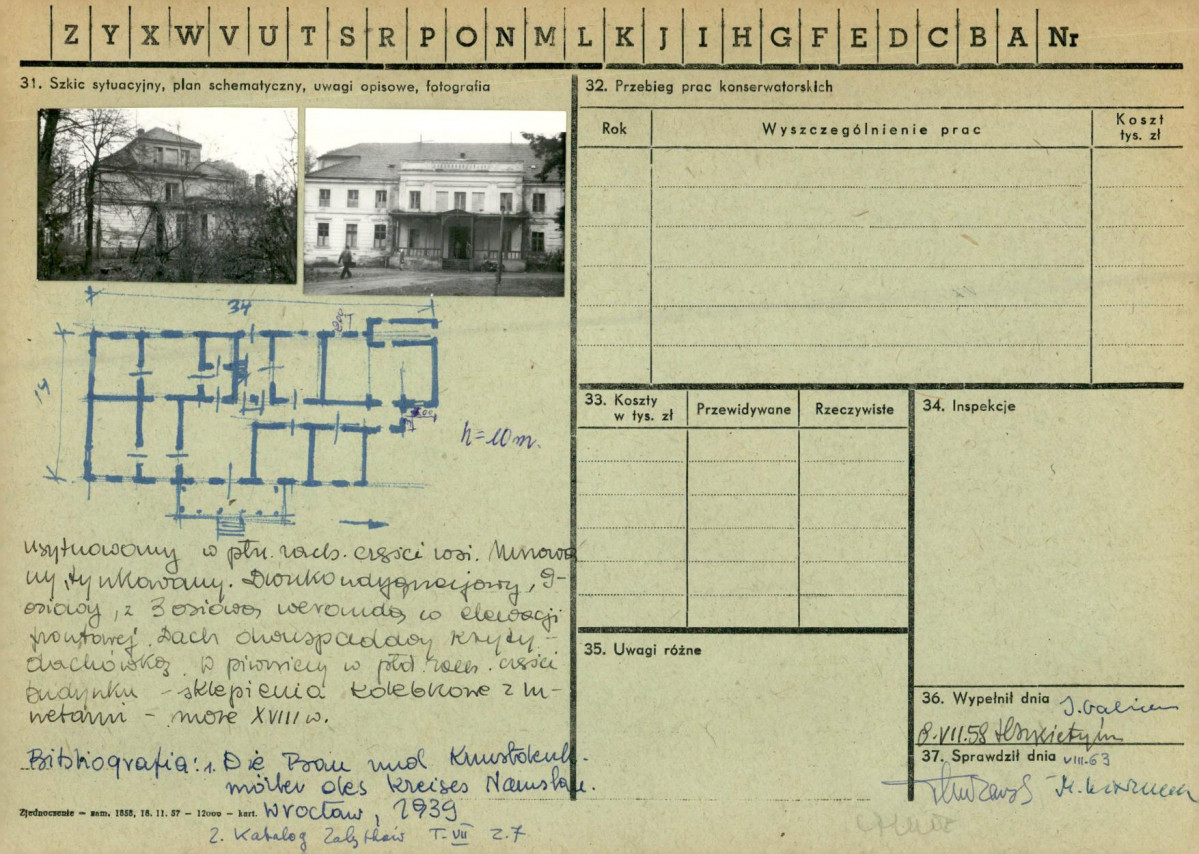 Z Y X W V U T S R P O N M L K J I H G F E D C B A Nr
31. Szkic sytuacyjny, plan schematyczny, uwagi opisowe, fotografia
34
14
h=10m.
usytuowany w płn. zach. części wsi. Murowa
ny, tynkowany. Dwukondygnacyjowy, 9-
osiowy, z 3 osiową werandą w elewacji
frontowej. Dach dwuspadowy kryty
dachówką. W piwnicy w płd. zach. części
budynku - sklepienia kolebkowe z lu-
netami - może XVIII w.
Bibliografia: 1. Die Bau und Kunstdenk-
mäler des Kreises Namslau.
Wrocław, 1939
2. Katalog Zabytków T. VII z. 7
Zjednoczenie — zam. 1858, 18. 11. 57 — 12000 — kart.
32. Przebieg prac konserwatorskich
Rok Wyszczególnienie prac Koszt
tys. zł
33. Koszty
w tys. zł Przewidywane Rzeczywiste
34. Inspekcje
35. Uwagi różne
36. Wypełnił dnia
8.VII.58
37. Sprawdził dnia VIII.63